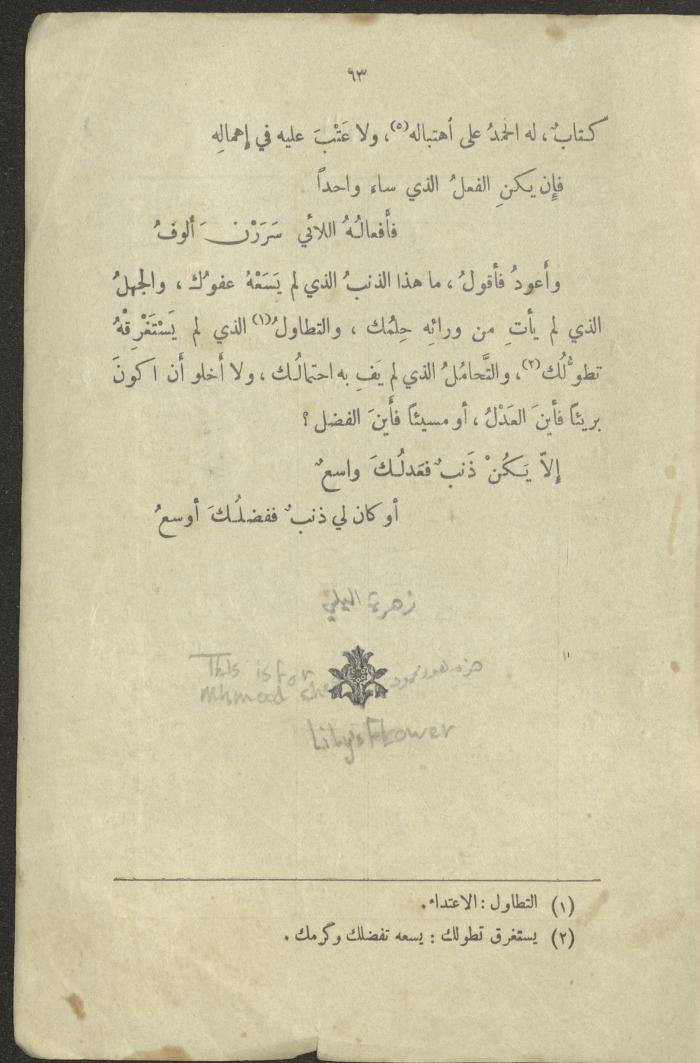 ٩٣
كتابٌ، له الحمدُ على اهتباله(٥)، ولا عَتْبَ عليه في إهمالِه
فإن يكنِ الفعلُ الذي ساء واحداً
فأَفعالُهُ اللائي سَرَرْنَ أُلوفُ
وأَعودُ فأقولُ، ما هذا الذنبُ الذي لم يَسَعْهُ عفوُك، والجهلُ
الذي لم يأتِ من ورائِه حِلمُك، والتطاولُ(١) الذي لم يَسْتَغْرِقْهُ
تطوُّلُك(٢)، والتَّحامُلُ الذي لم يَفِ به احتمالُك، ولا أَخلو أَن اكونَ
بريئاً فأينَ العَدْلُ، أو مسيئاً فأَينَ الفضل؟
إلاّ يَكُنْ ذَنبٌ فعَدلُكَ واسعٌ
أو كان لي ذنبٌ ففضلُكَ أوسعُ
زهرة الليلي
This is for
Mhmood
Lily's Flower
(١) التطاول: الاعتداء.
(٢) يستغرق تطولك: يسعه تفضلك وكرمك.